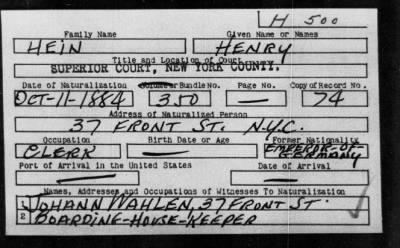 H 500
Family Name Given Name or Names
HEIN HENRY
Title and Location of Court
SUPERIOR COURT, NEW YORK COUNTY.
Date of Naturalization Volume or Bundle No. Page No. Copy of Record No.
OCT-11-1884 350 — 74
Address of Naturalized Person
37 FRONT ST. N.Y.C.
Occupation Birth Date or Age Former Nationality
CLERK — EMPEROR-OF-GERMANY
Port of Arrival in the United States Date of Arrival
— —
Names, Addresses and Occupations of Witnesses To Naturalization
1 JOHANN WAHLEN, 37 FRONT ST.
2 BOARDING-HOUSE-KEEPER